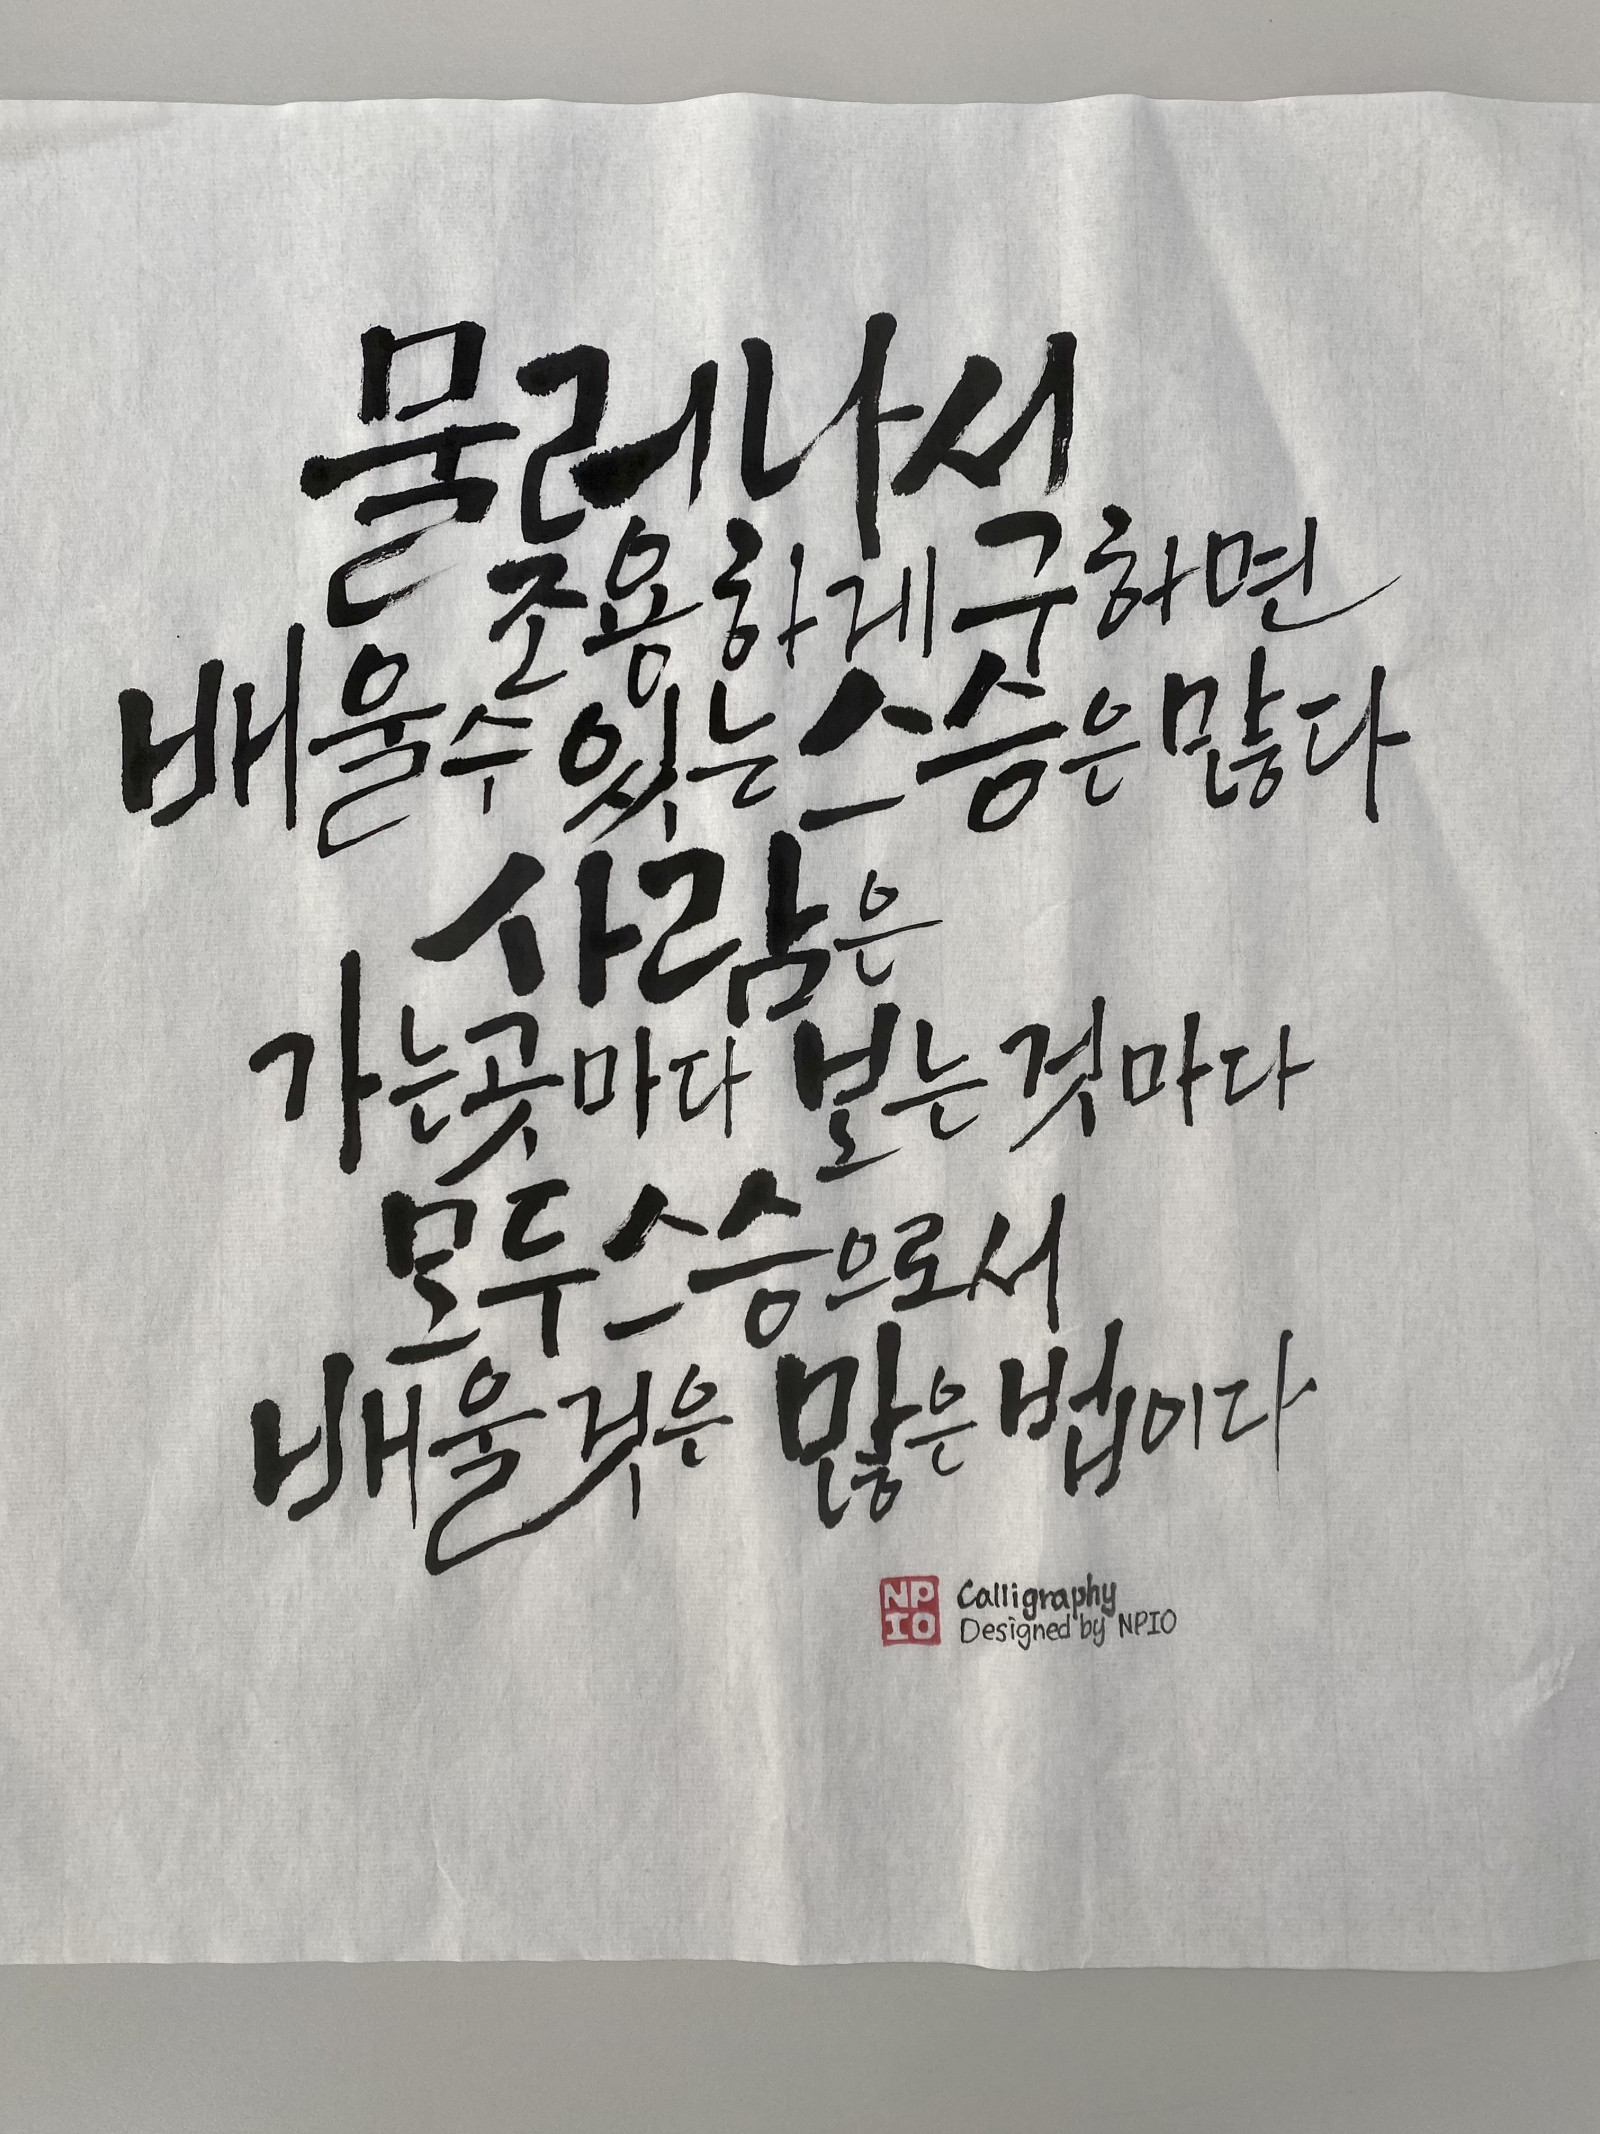 물러나서
조용하게 구하면
배울 수 있는 스승은 많다
사람은
가는 곳마다 보는 것마다
모두 스승으로서
배울 것은 많은 법이다
NP
IO
Calligraphy
Designed by NPIO